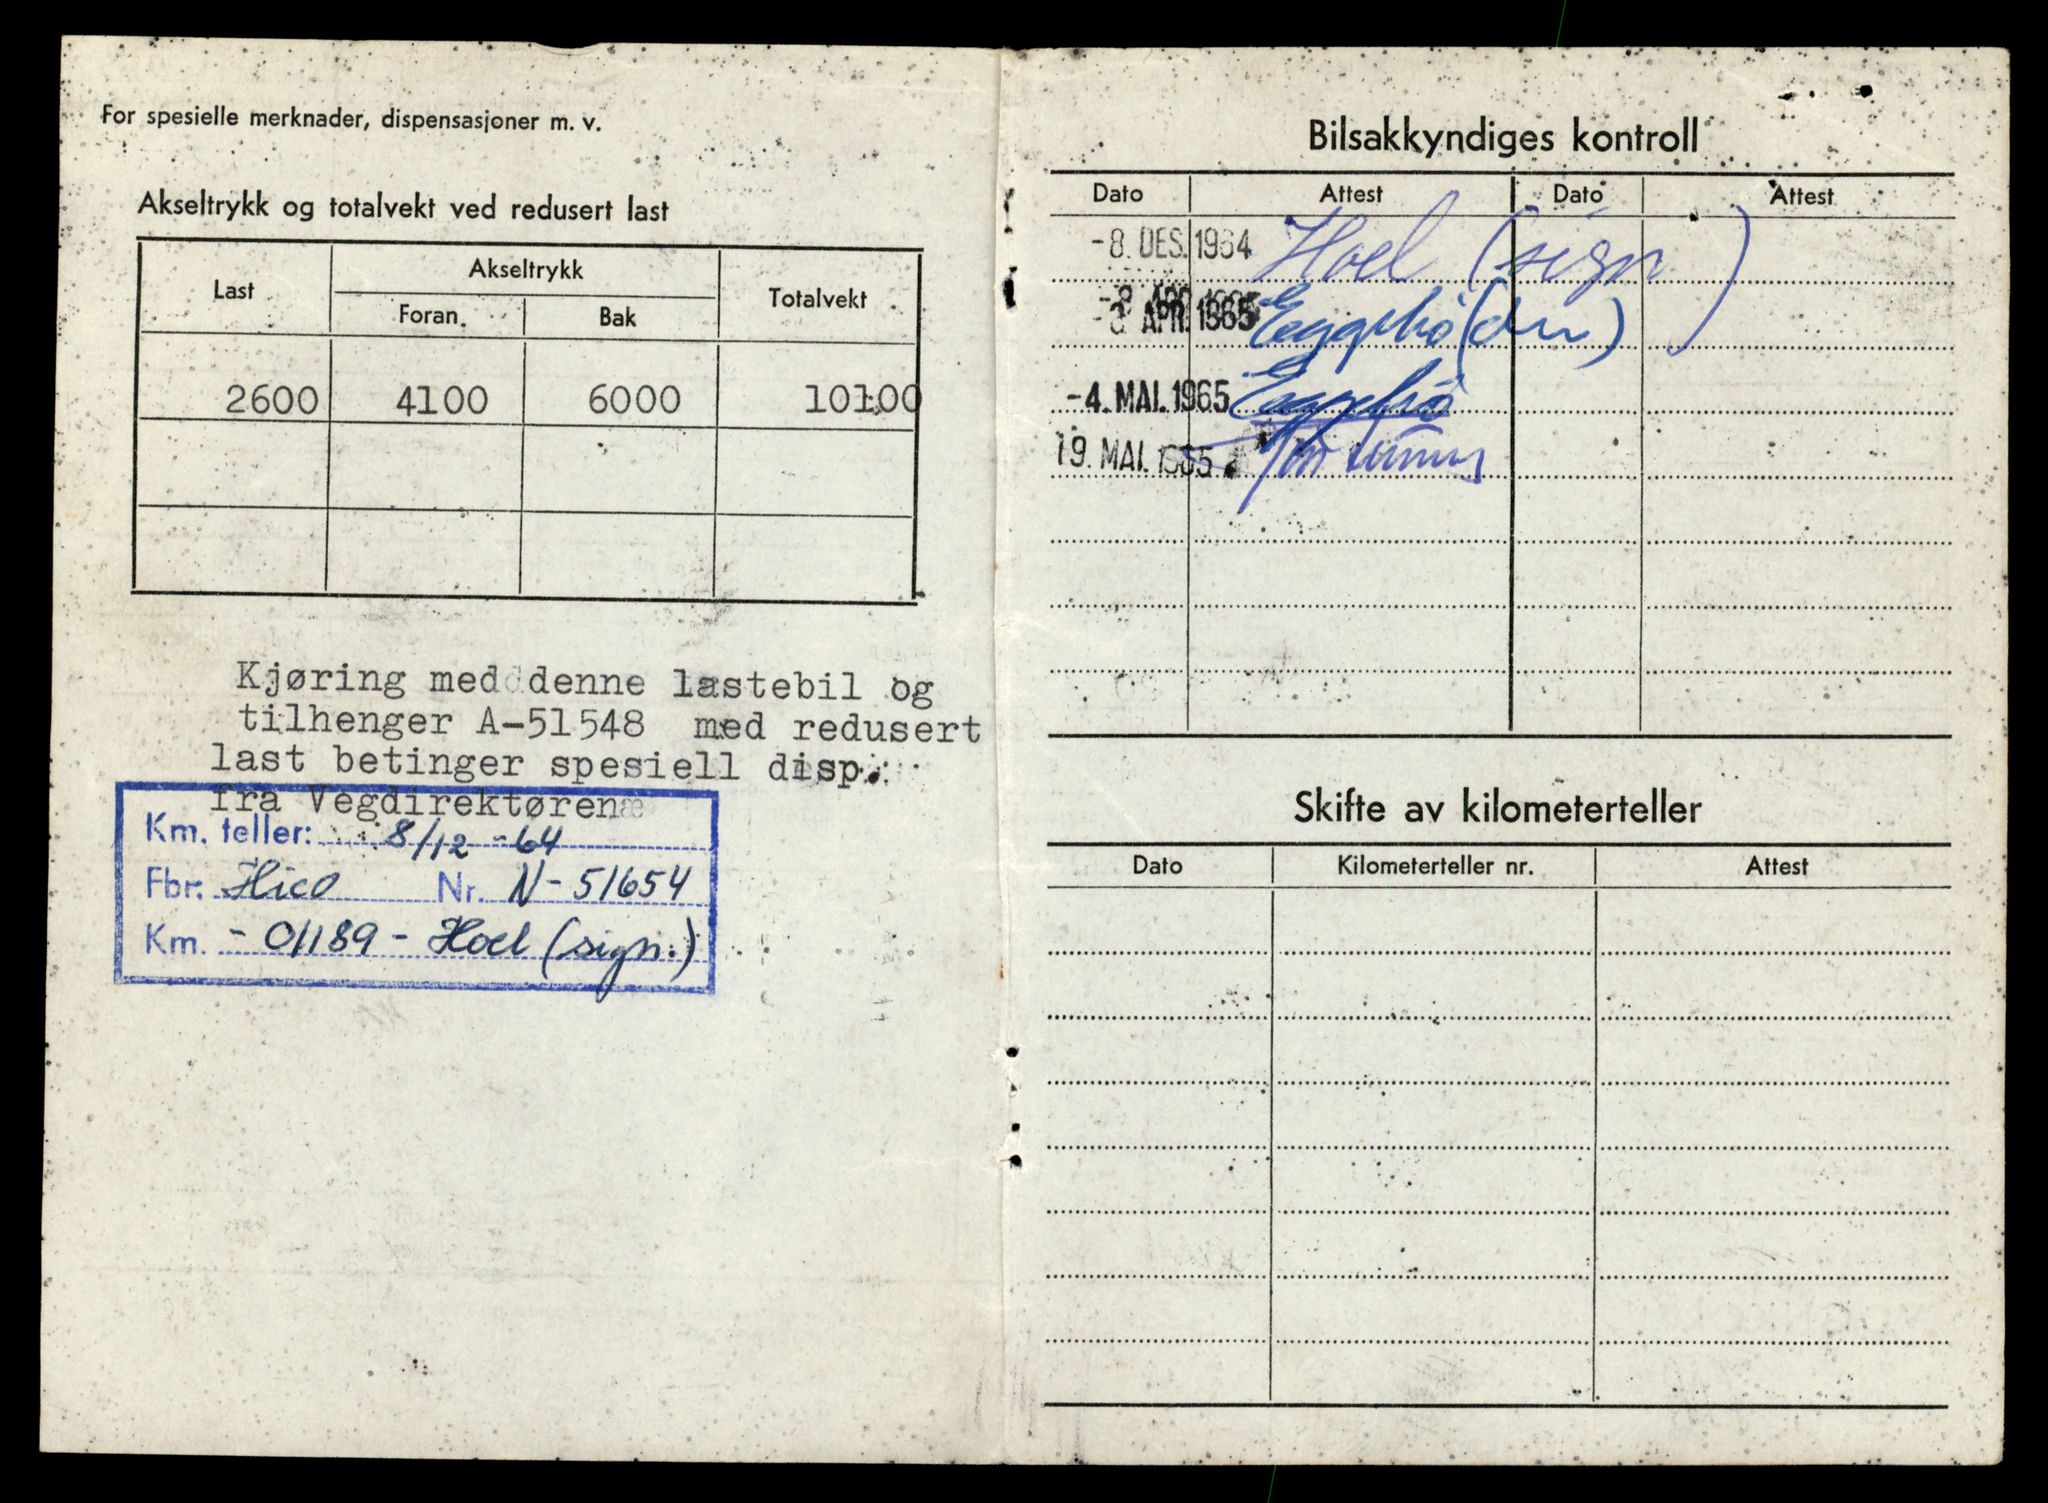 For spesielle merknader, dispensasjoner m. v.
Akseltrykk og totalvekt ved redusert last
Last Akseltrykk Totalvekt
Foran Bak
2600 4100 6000 10100
Kjøring med denne lastebil og
tilhenger A-51548 med redusert
last betinger spesiell disp.
fra Vegdirektøren
Km. teller: 8/12 -64
Fbr. Hico Nr. N-51654
Km. - 01189 - Hoel (sign.)
Bilsakkyndiges kontroll
Dato Attest Dato Attest
-8. DES. 1964 Hoel (sign)
APR. 1965
-4. MAI. 1965
19. MAI. 1965
Skifte av kilometerteller
Dato Kilometerteller nr. Attest